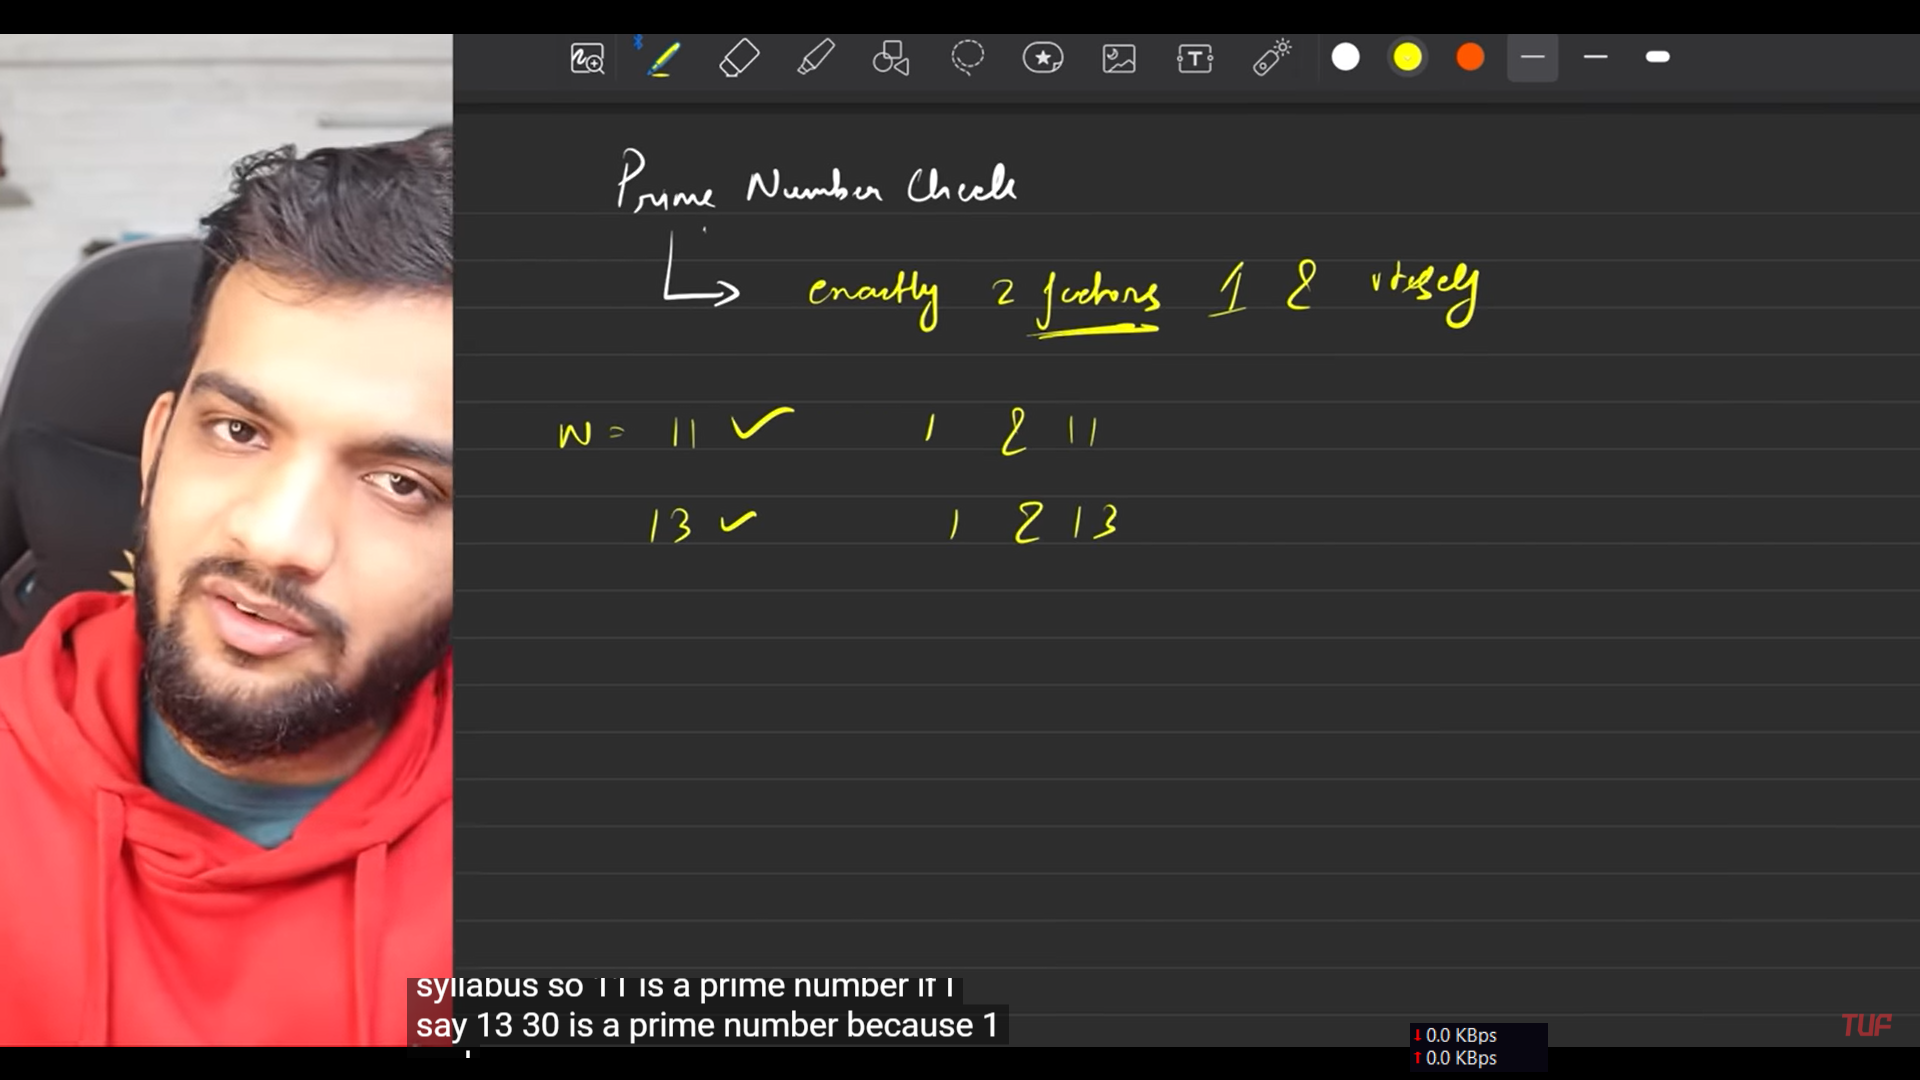 Prime Number Check
exactly 2 factors 1 & itself
N = 11 ✓ 1 & 11
13 ✓ 1 & 13
syllabus so 11 is a prime number if I
say 13 30 is a prime number because 1
TUF
↓ 0.0 KBps
↑ 0.0 KBps